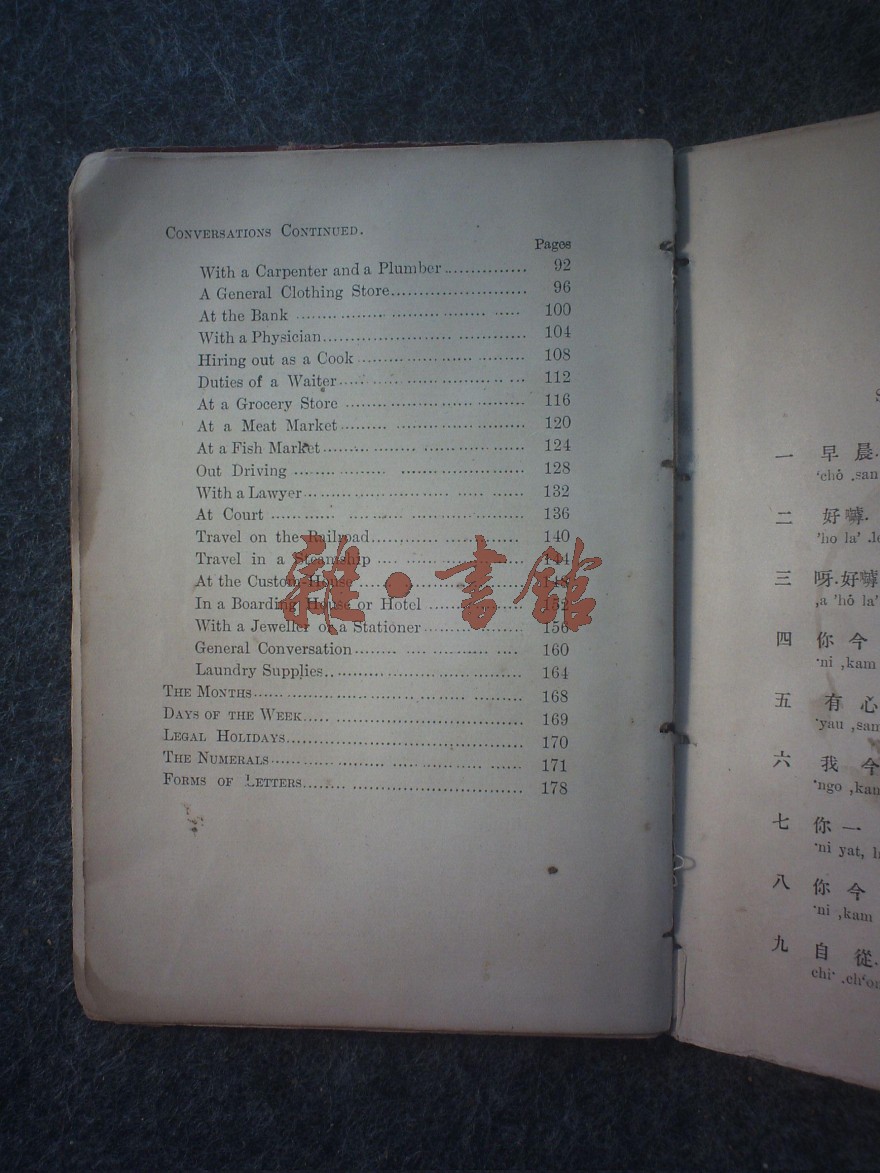 CONVERSATIONS CONTINUED.
Pages
With a Carpenter and a Plumber 92
A General Clothing Store 96
At the Bank 100
With a Physician 104
Hiring out as a Cook 108
Duties of a Waiter 112
At a Grocery Store 116
At a Meat Market 120
At a Fish Market 124
Out Driving 128
With a Lawyer 132
At Court 136
Travel on the Railroad 140
Travel in a Steamship 144
At the Custom-House 148
In a Boarding House or Hotel 152
With a Jeweller or a Stationer 156
General Conversation 160
Laundry Supplies 164
THE MONTHS 168
DAYS OF THE WEEK 169
LEGAL HOLIDAYS 170
THE NUMERALS 171
FORMS OF LETTERS 178
雜·書館
一 早晨.
'chò .san
二 好嚹.
'ho la'
三 呀.好嚹
,a 'hô la'
四 你今
'ni ,kam
五 有心
'yau ,sam
六 我今
'ngo ,kam
七 你一
'ni yat,
八 你今
'ni ,kam
九 自從.
chi'